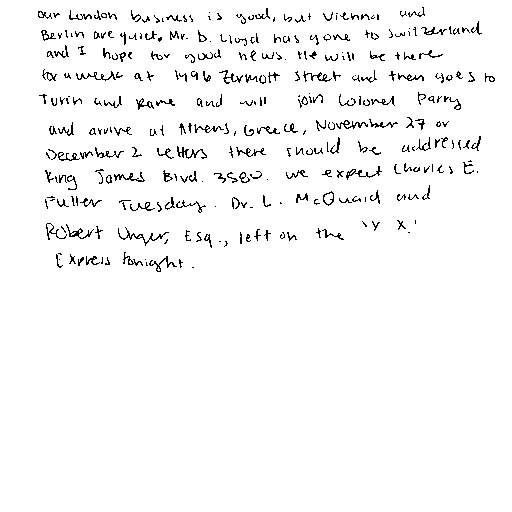 our London business is good, but Vienna and
Berlin are quiet. Mr. D. Lloyd has gone to Switzerland
and I hope for good news. He will be there
for a week at 1496 Zermott Street and then goes to
Turin and Rome and will join Colonel Parry
and arrive at Athens, Greece, November 27 or
December 2. Letters there should be addressed
King James Blvd. 3580. We expect Charles E.
Fuller Tuesday. Dr. L. McQuaid and
Robert Unger, Esq., left on the "Y X."
Express tonight.